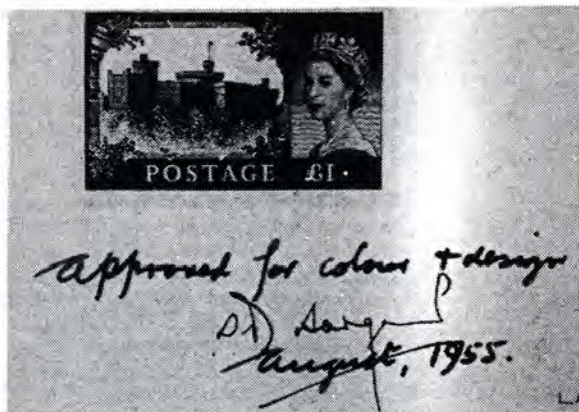 POSTAGE £1.
approved for colour + design
August, 1955.